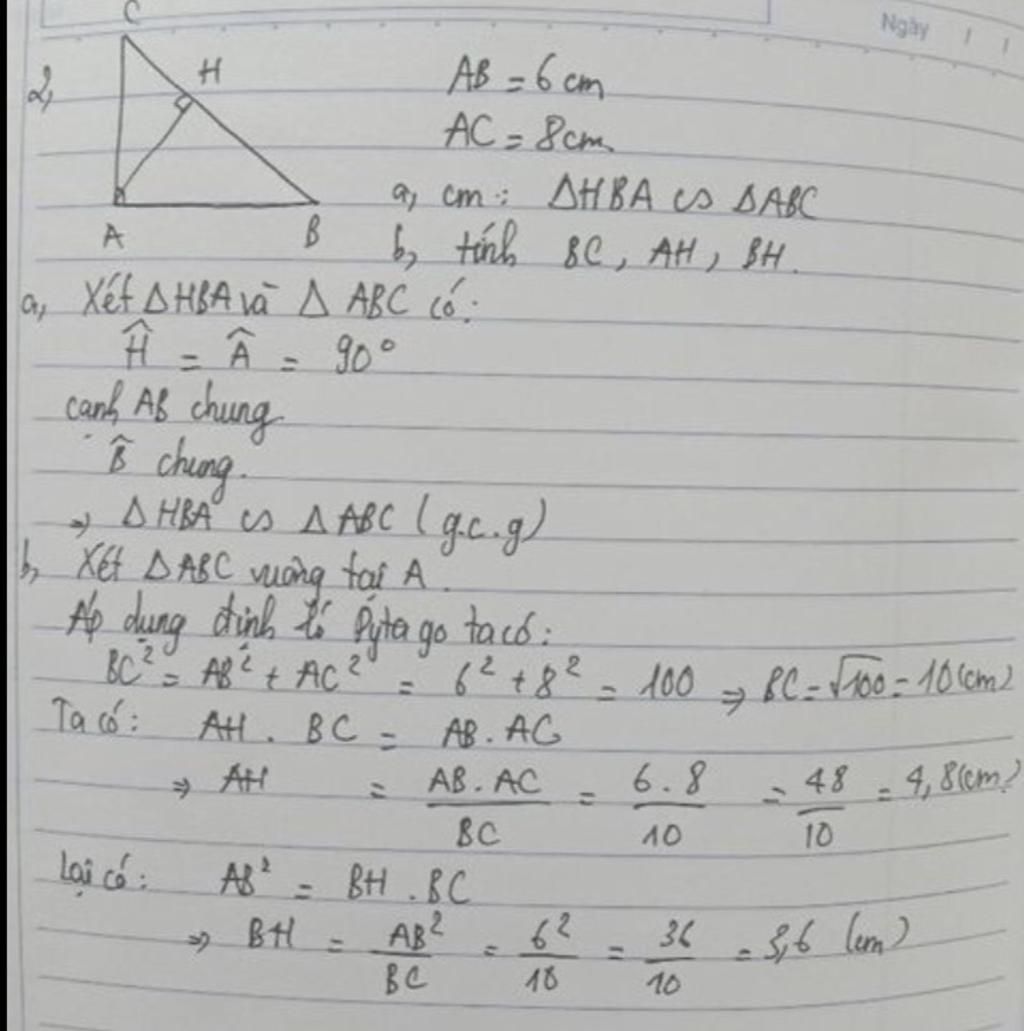 Ngày / /
2,
C
H
A
B
AB = 6 cm
AC = 8cm
a, cm: ΔHBA ∽ ΔABC
b, tính BC, AH, BH.
a, Xét ΔHBA và Δ ABC có:
Ĥ = Â = 90°
cạnh AB chung
B̂ chung.
⇒ Δ HBA ∽ Δ ABC (g.c.g)
b, Xét ΔABC vuông tại A.
Áp dụng định lí Pytago ta có:
BC² = AB² + AC² = 6² + 8² = 100 ⇒ BC = √100 = 10 (cm)
Ta có: AH . BC = AB . AC
⇒ AH = AB . AC / BC = 6 . 8 / 10 = 48 / 10 = 4,8 (cm)
Lại có: AB² = BH . BC
⇒ BH = AB² / BC = 6² / 10 = 36 / 10 = 3,6 (cm)